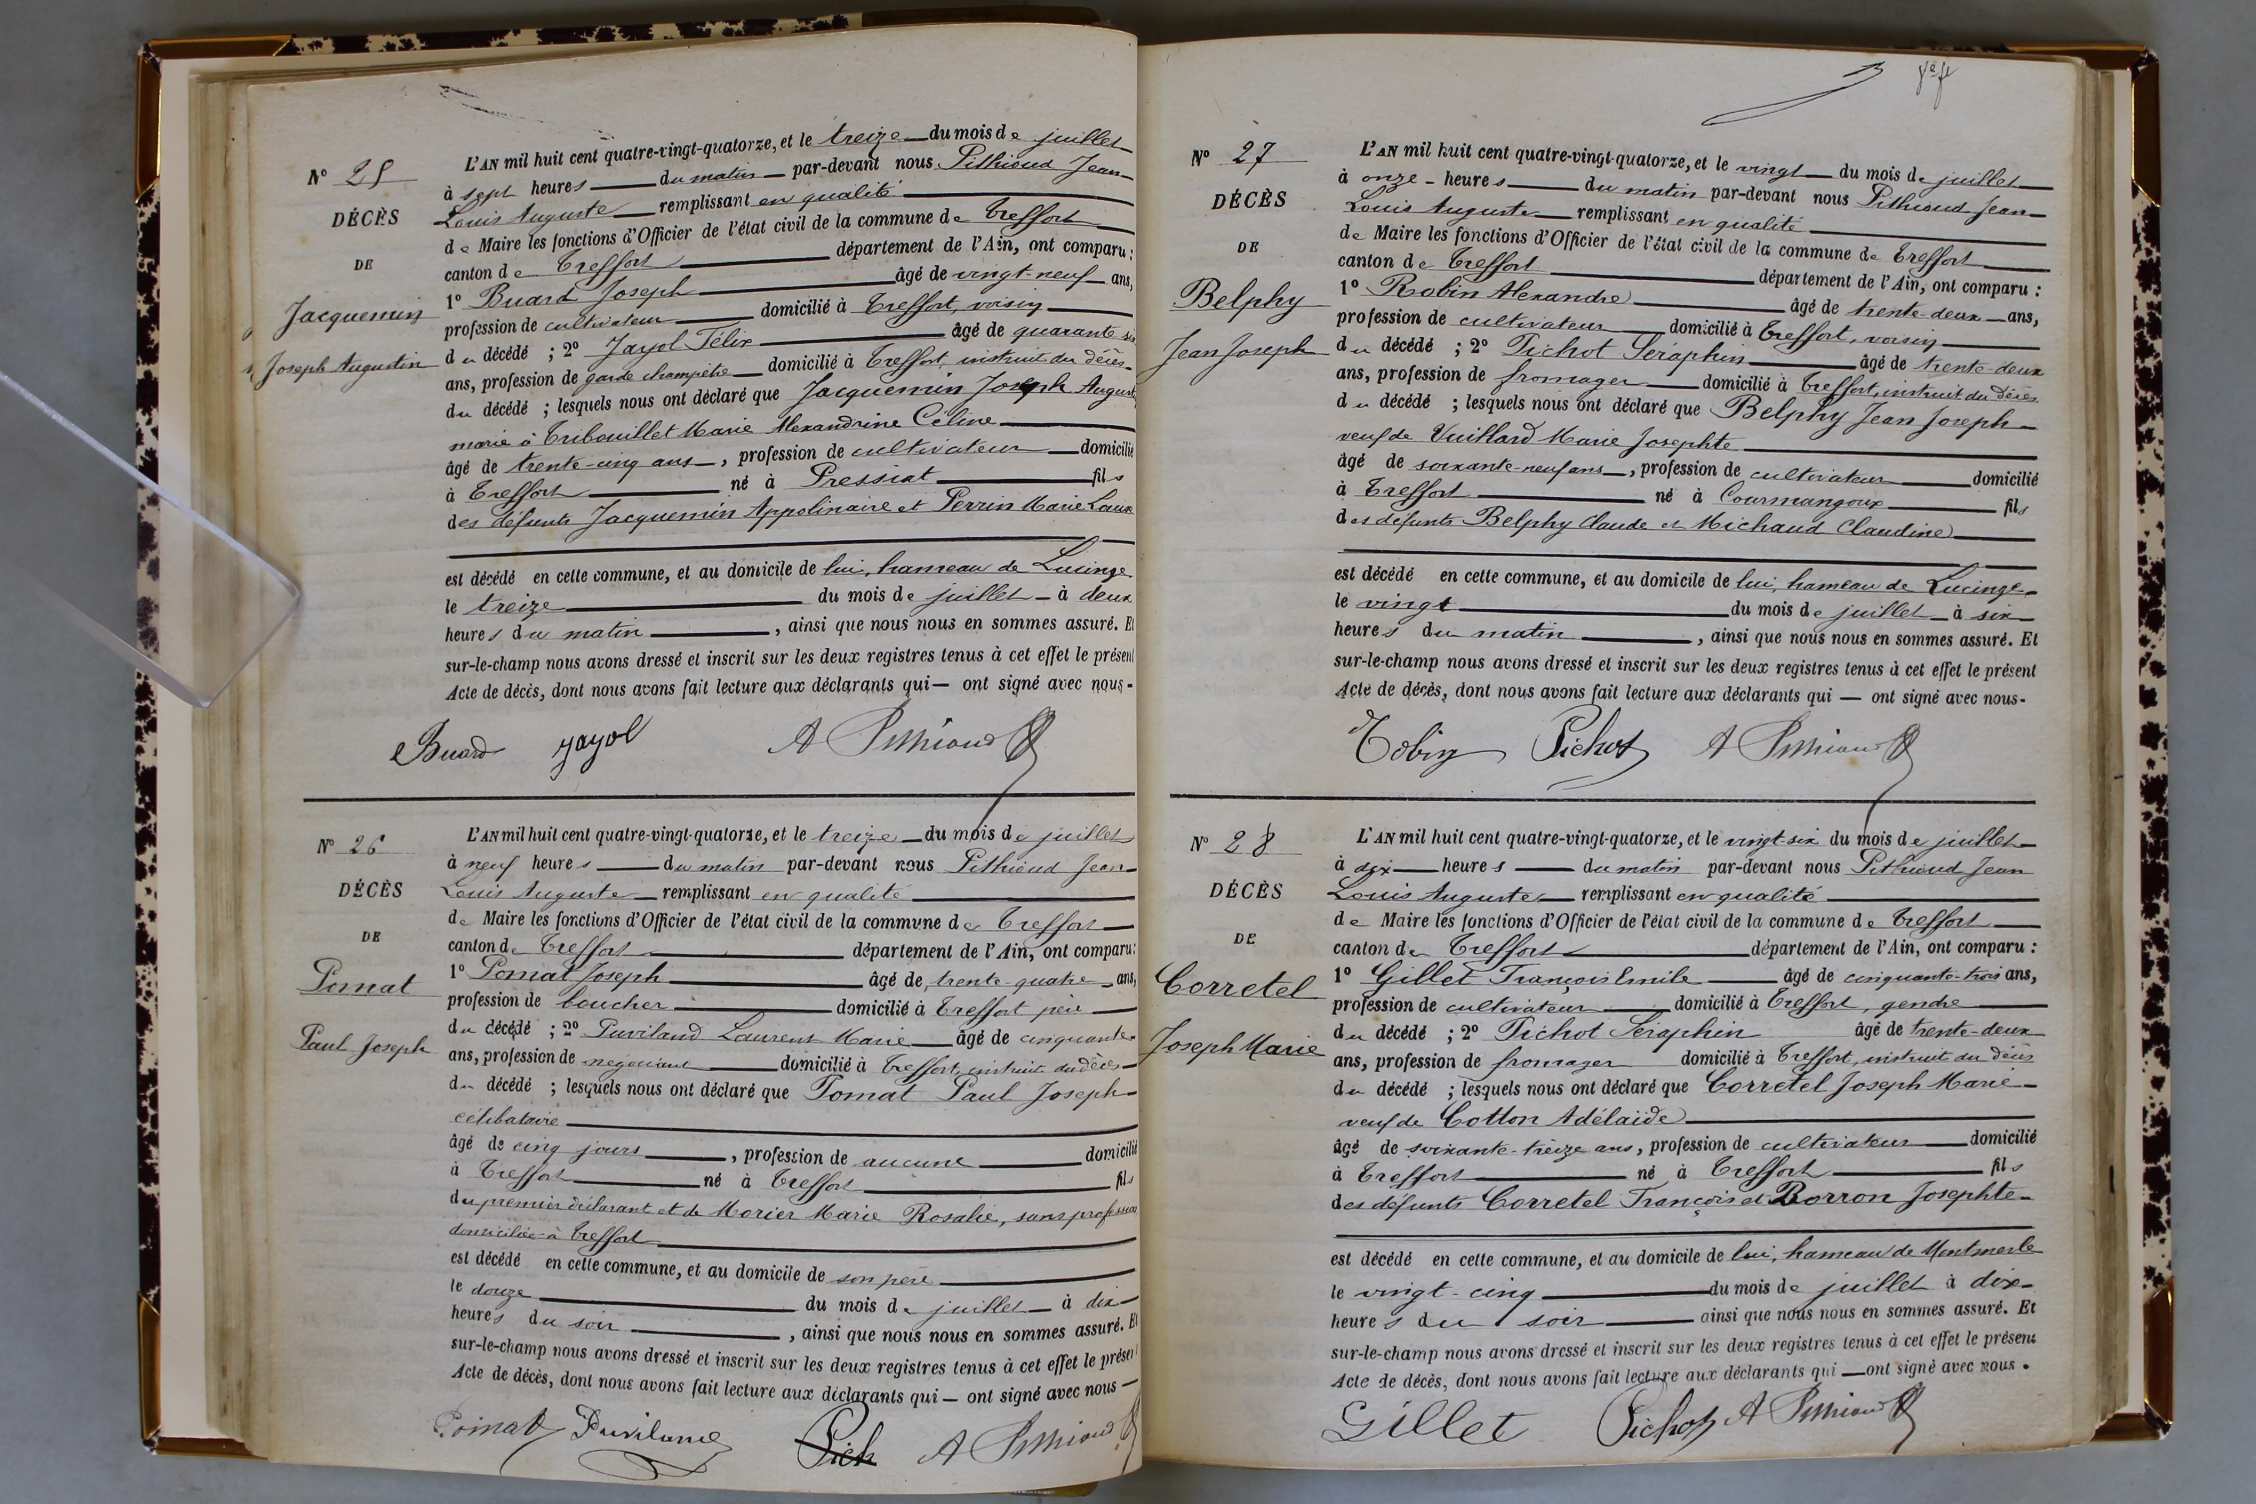 N° 25
DÉCÈS
DE
Jacquemin
Joseph Augustin
L'AN mil huit cent quatre-vingt-quatorze, et le treize du mois de juillet
à sept heures du matin par-devant nous Pithioud Jean-
Louis Auguste remplissant en qualité
de Maire les fonctions d'Officier de l'état civil de la commune de Treffort
canton de Treffort département de l'Ain, ont comparu :
1° Buard Joseph âgé de vingt-neuf ans,
profession de cultivateur domicilié à Treffort, voisin
du décédé ; 2° Jayol Félix âgé de quarante six
ans, profession de garde champêtre domicilié à Treffort, instruit du décès
du décédé ; lesquels nous ont déclaré que Jacquemin Joseph August
marié à Tribouillet Marie Alexandrine Céline
âgé de trente-cinq ans, profession de cultivateur domicilié
à Treffort né à Pressiat fils
des défunts Jacquemin Appolinaire et Perrin Marie Laure
est décédé en cette commune, et au domicile de lui, hameau de Lucinge
le treize du mois de juillet à deux
heures du matin, ainsi que nous nous en sommes assuré. Et
sur-le-champ nous avons dressé et inscrit sur les deux registres tenus à cet effet le présent
Acte de décès, dont nous avons fait lecture aux déclarants qui — ont signé avec nous-
Buard Jayol A Pithioud
N° 26
DÉCÈS
DE
Pomat
Paul Joseph
L'AN mil huit cent quatre-vingt-quatorze, et le treize du mois de juillet
à neuf heures du matin par-devant nous Pithioud Jean-
Louis Auguste remplissant en qualité
de Maire les fonctions d'Officier de l'état civil de la commune de Treffort
canton de Treffort département de l'Ain, ont comparu :
1° Pomat Joseph âgé de trente-quatre ans,
profession de boucher domicilié à Treffort père
du décédé ; 2° Puviland Laurent Marie âgé de cinquante
ans, profession de négociant domicilié à Treffort, instruit du décès
du décédé ; lesquels nous ont déclaré que Pomat Paul Joseph
célibataire
âgé de cinq jours, profession de aucune domicilié
à Treffort né à Treffort fils
du premier déclarant et de Morier Marie Rosalie, sans profession
domiciliée à Treffort
est décédé en cette commune, et au domicile de son père
le douze du mois de juillet à dix
heures du soir, ainsi que nous nous en sommes assuré. Et
sur-le-champ nous avons dressé et inscrit sur les deux registres tenus à cet effet le présent
Acte de décès, dont nous avons fait lecture aux déclarants qui — ont signé avec nous —
Pomat Puviland Pich A Pithioud
N° 27
DÉCÈS
DE
Belphy
Jean Joseph
L'AN mil huit cent quatre-vingt-quatorze, et le vingt du mois de juillet
à onze heures du matin par-devant nous Pithioud Jean-
Louis Auguste remplissant en qualité
de Maire les fonctions d'Officier de l'état civil de la commune de Treffort
canton de Treffort département de l'Ain, ont comparu :
1° Robin Alexandre âgé de trente-deux ans,
profession de cultivateur domicilié à Treffort, voisin
du décédé ; 2° Pichot Séraphin âgé de trente-deux
ans, profession de fromager domicilié à Treffort, instruit du décès
du décédé ; lesquels nous ont déclaré que Belphy Jean Joseph
veuf de Vuillard Marie Josephte
âgé de soixante-neuf ans, profession de cultivateur domicilié
à Treffort né à Courmangoux fils
des défunts Belphy Claude et Michaud Claudine
est décédé en cette commune, et au domicile de lui, hameau de Lucinge
le vingt du mois de juillet à six
heures du matin, ainsi que nous nous en sommes assuré. Et
sur-le-champ nous avons dressé et inscrit sur les deux registres tenus à cet effet le présent
Acte de décès, dont nous avons fait lecture aux déclarants qui — ont signé avec nous-
Robin Pichot A Pithioud
N° 28
DÉCÈS
DE
Corretel
Joseph Marie
L'AN mil huit cent quatre-vingt-quatorze, et le vingt-six du mois de juillet
à dix heures du matin par-devant nous Pithioud Jean
Louis Auguste remplissant en qualité
de Maire les fonctions d'Officier de l'état civil de la commune de Treffort
canton de Treffort département de l'Ain, ont comparu :
1° Gillet François Emile âgé de cinquante-trois ans,
profession de cultivateur domicilié à Treffort, gendre
du décédé ; 2° Pichot Séraphin âgé de trente-deux
ans, profession de fromager domicilié à Treffort, instruit du décès
du décédé ; lesquels nous ont déclaré que Corretel Joseph Marie
veuf de Cotton Adélaïde
âgé de soixante-treize ans, profession de cultivateur domicilié
à Treffort né à Treffort fils
des défunts Corretel François et Borron Josephte
est décédé en cette commune, et au domicile de lui, hameau de Montmerle
le vingt-cinq du mois de juillet à dix
heures du soir ainsi que nous nous en sommes assuré. Et
sur-le-champ nous avons dressé et inscrit sur les deux registres tenus à cet effet le présent
Acte de décès, dont nous avons fait lecture aux déclarants qui — ont signé avec nous.
Gillet Pichot A Pithioud